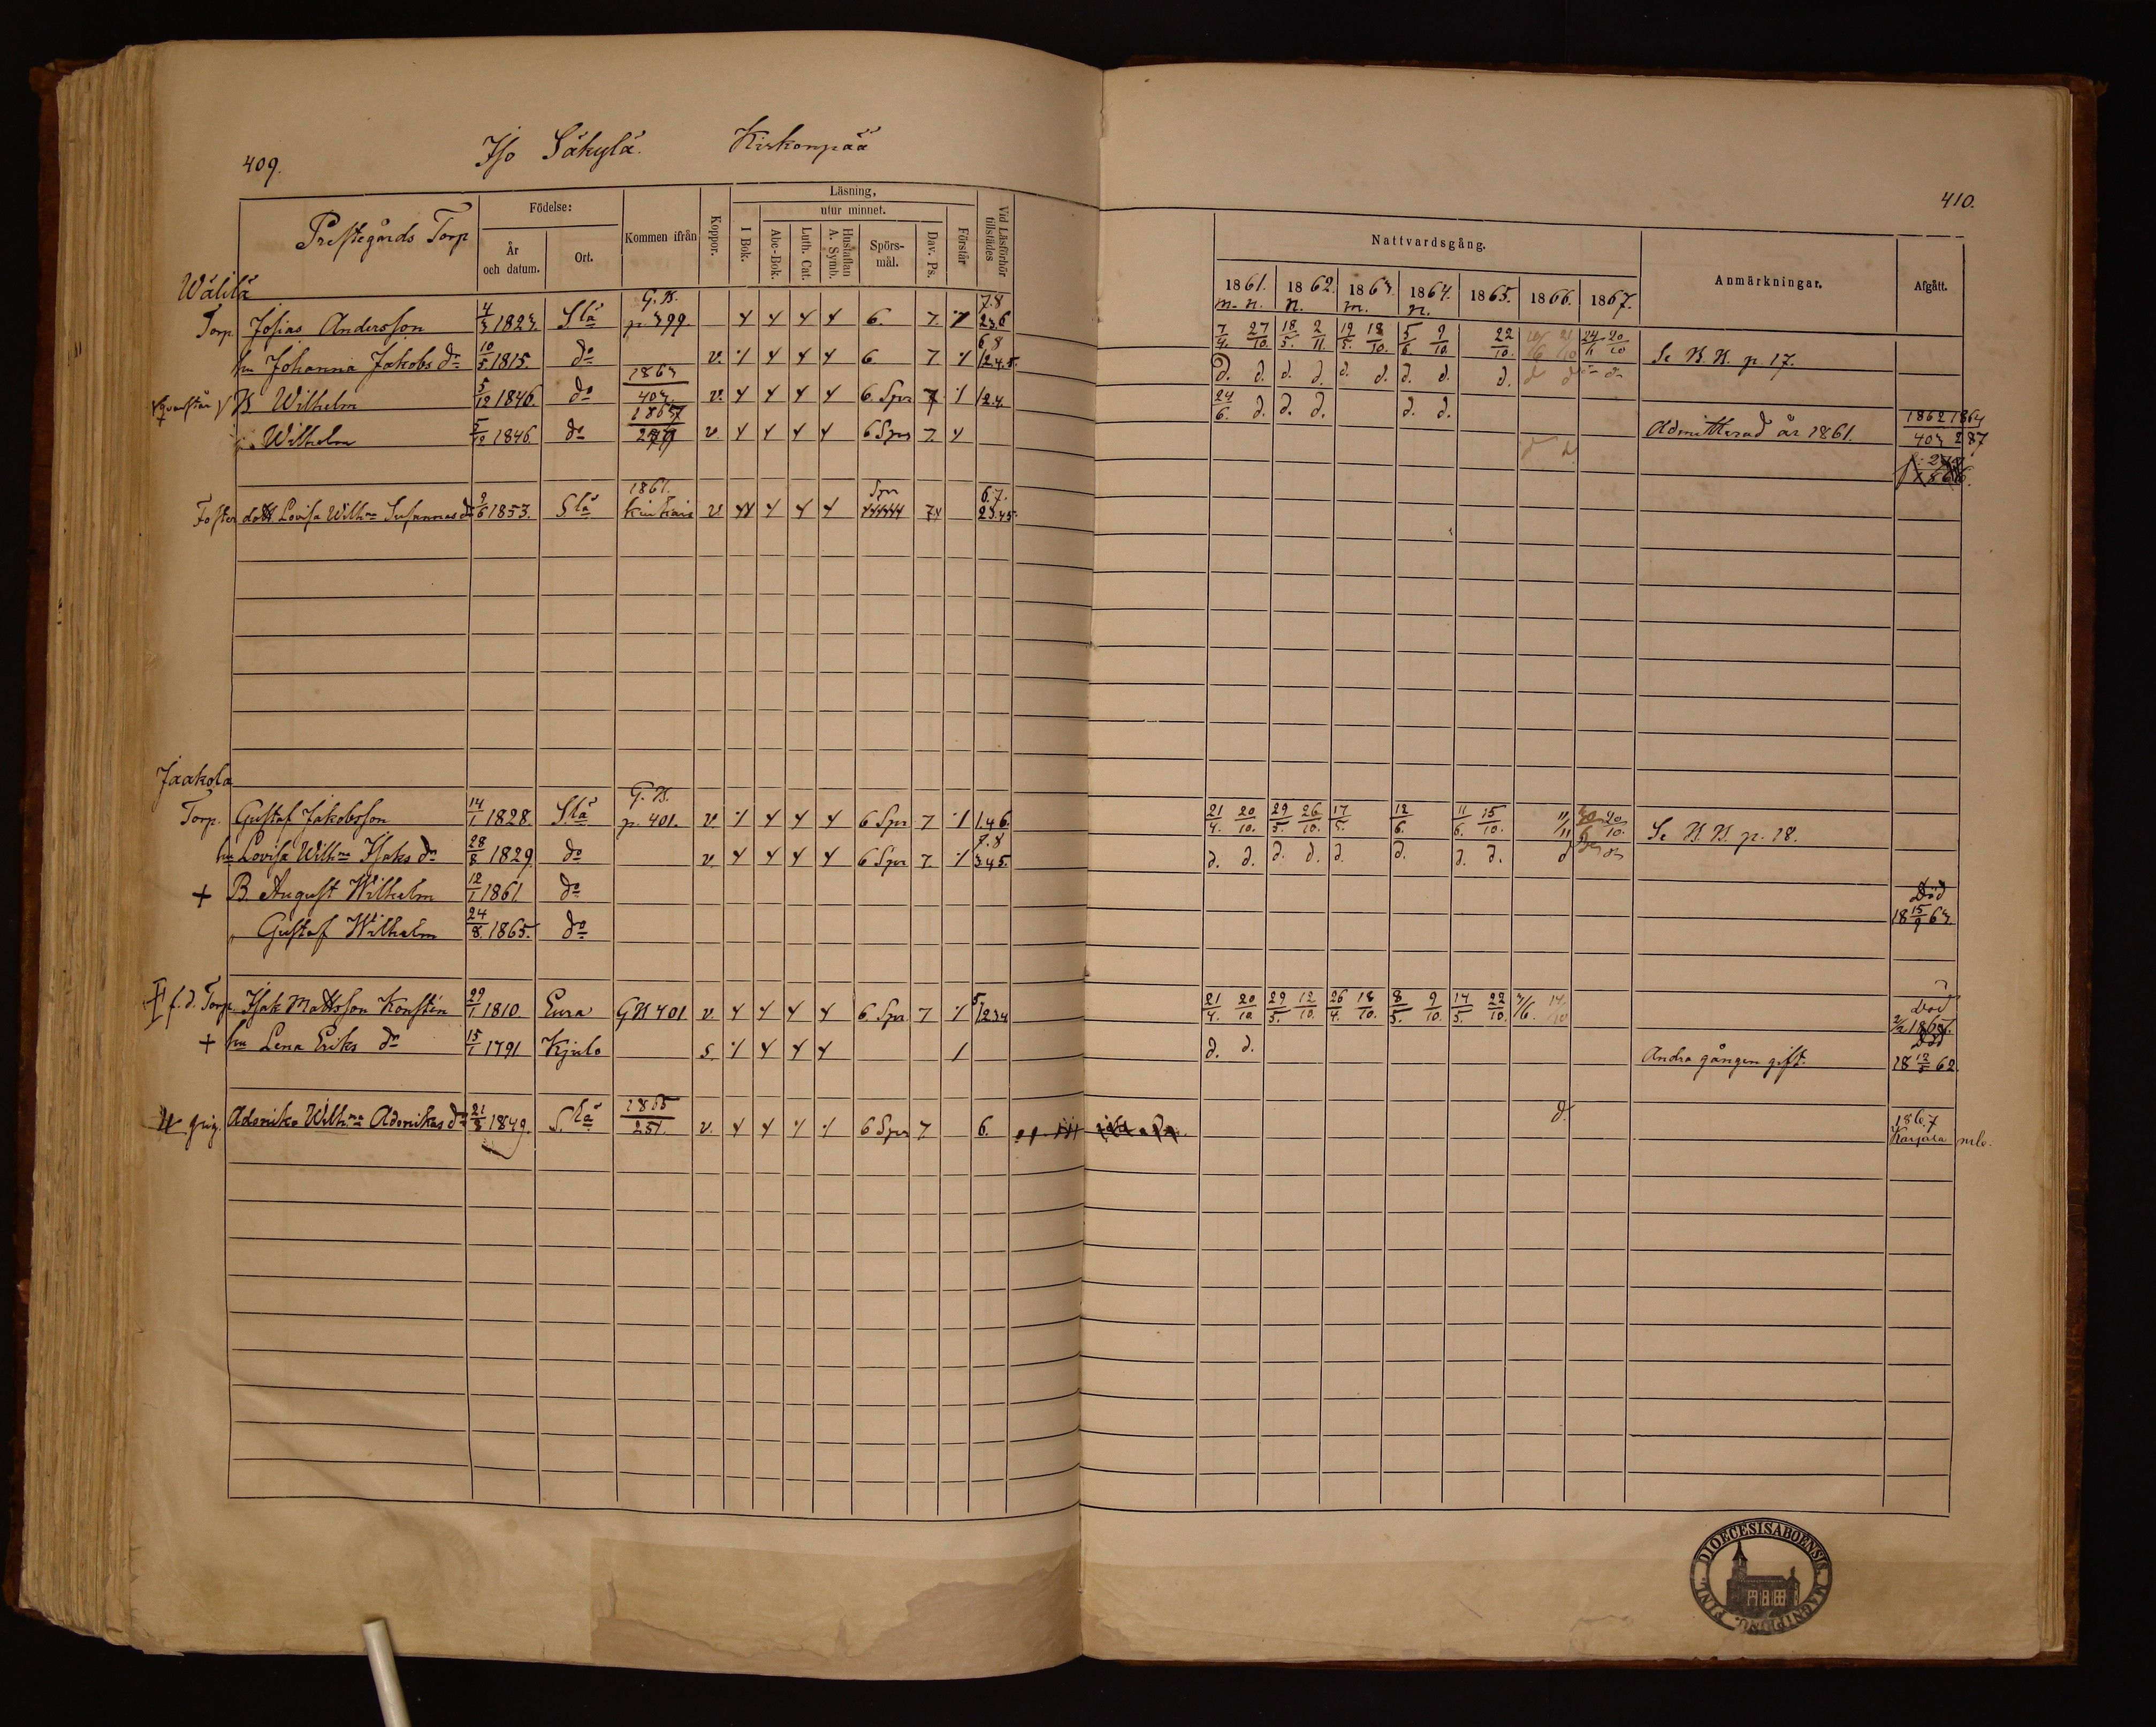 409.
Iso Säkylä. Kirkonpää
410.
Prestegårds Torp
Födelse:
År och datum.
Ort.
Kommen ifrån
Koppor.
Läsning,
utur minnet.
I Bok.
Abc-Bok.
Luth. Cat.
Hustaflan A. Symb.
Spörs-mål.
Dav. Ps.
Förstår
Vid Läsförhör tillstädes
Nattvardsgång.
1861. 1862. 1863. 1864. 1865. 1866. 1867.
m. n. n. m. n.
Anmärkningar.
Afgått.
Wälilä
Torp. Josias Andersson 4/3 1823. Slä G.B. p. 399. 6. 7. 7.8 23.6 7/4. 27/10. 18/5. 2/11 19/5. 18/10. 5/6 9/10. 22/10. Se K. B. p. 17.
hu Johanna Jakobs dr 10/5 1815. do v. 6 7 6.8 12.4.5. d. d. d. d. d. d. d. d. d.
B Wilhelm 5/12 1846. do 1863 403. v. 6. Spr 7 124 24/6. d. d. d. d. d. Admitterad år 1861. 1862 1864 403 287
Wilhelm 5/12 1846 do v 6 Spr 7
Foster dottr Lovisa Wilhna Susannas dr 9/6 1853. Slä 1861. v Spr 7 6.7. 23.45.
Jaakola
Torp. Gustaf Jakobsson 14/1 1828. Slä G.B. p. 401. v. 6 Spr 7 1.46. 21/4. 20/10. 29/5. 26/10. 17/5. 12/6. 11/6. 15/10. 11/11 20/10. Se K. B. p. 18.
hu Lovisa Wilhna Isaks dr 28/8 1829 do v 6 Spr 7. 7.8 345. d. d. d. d. d. d. d. d. d
+ B. August Wilhelm 12/1 1861 do Död 18 15/9 63.
" Gustaf Wilhelm 24/8. 1865. do
f.d. Torp. Isak Mattsson Konstén 29/1 1810. Eura GB 401 v. 6 Spr 7 5/1234 21/4. 20/10. 29/5. 12/10. 26/4. 18/10. 8/5. 9/10. 14/5. 22/10. Död
+ hu Lena Eriks dr 15/1 1791 Kjulo s. d. d. Andra gången gift. Död 18 12/5 62.
Adamiko Wilhna Adamikas dr 21/8 1849. Slä 1865 251. v. 6 Spr 7 6. d. 1867
DIOECESIS ABOENSIS. MAGNI PRINC. FINL.